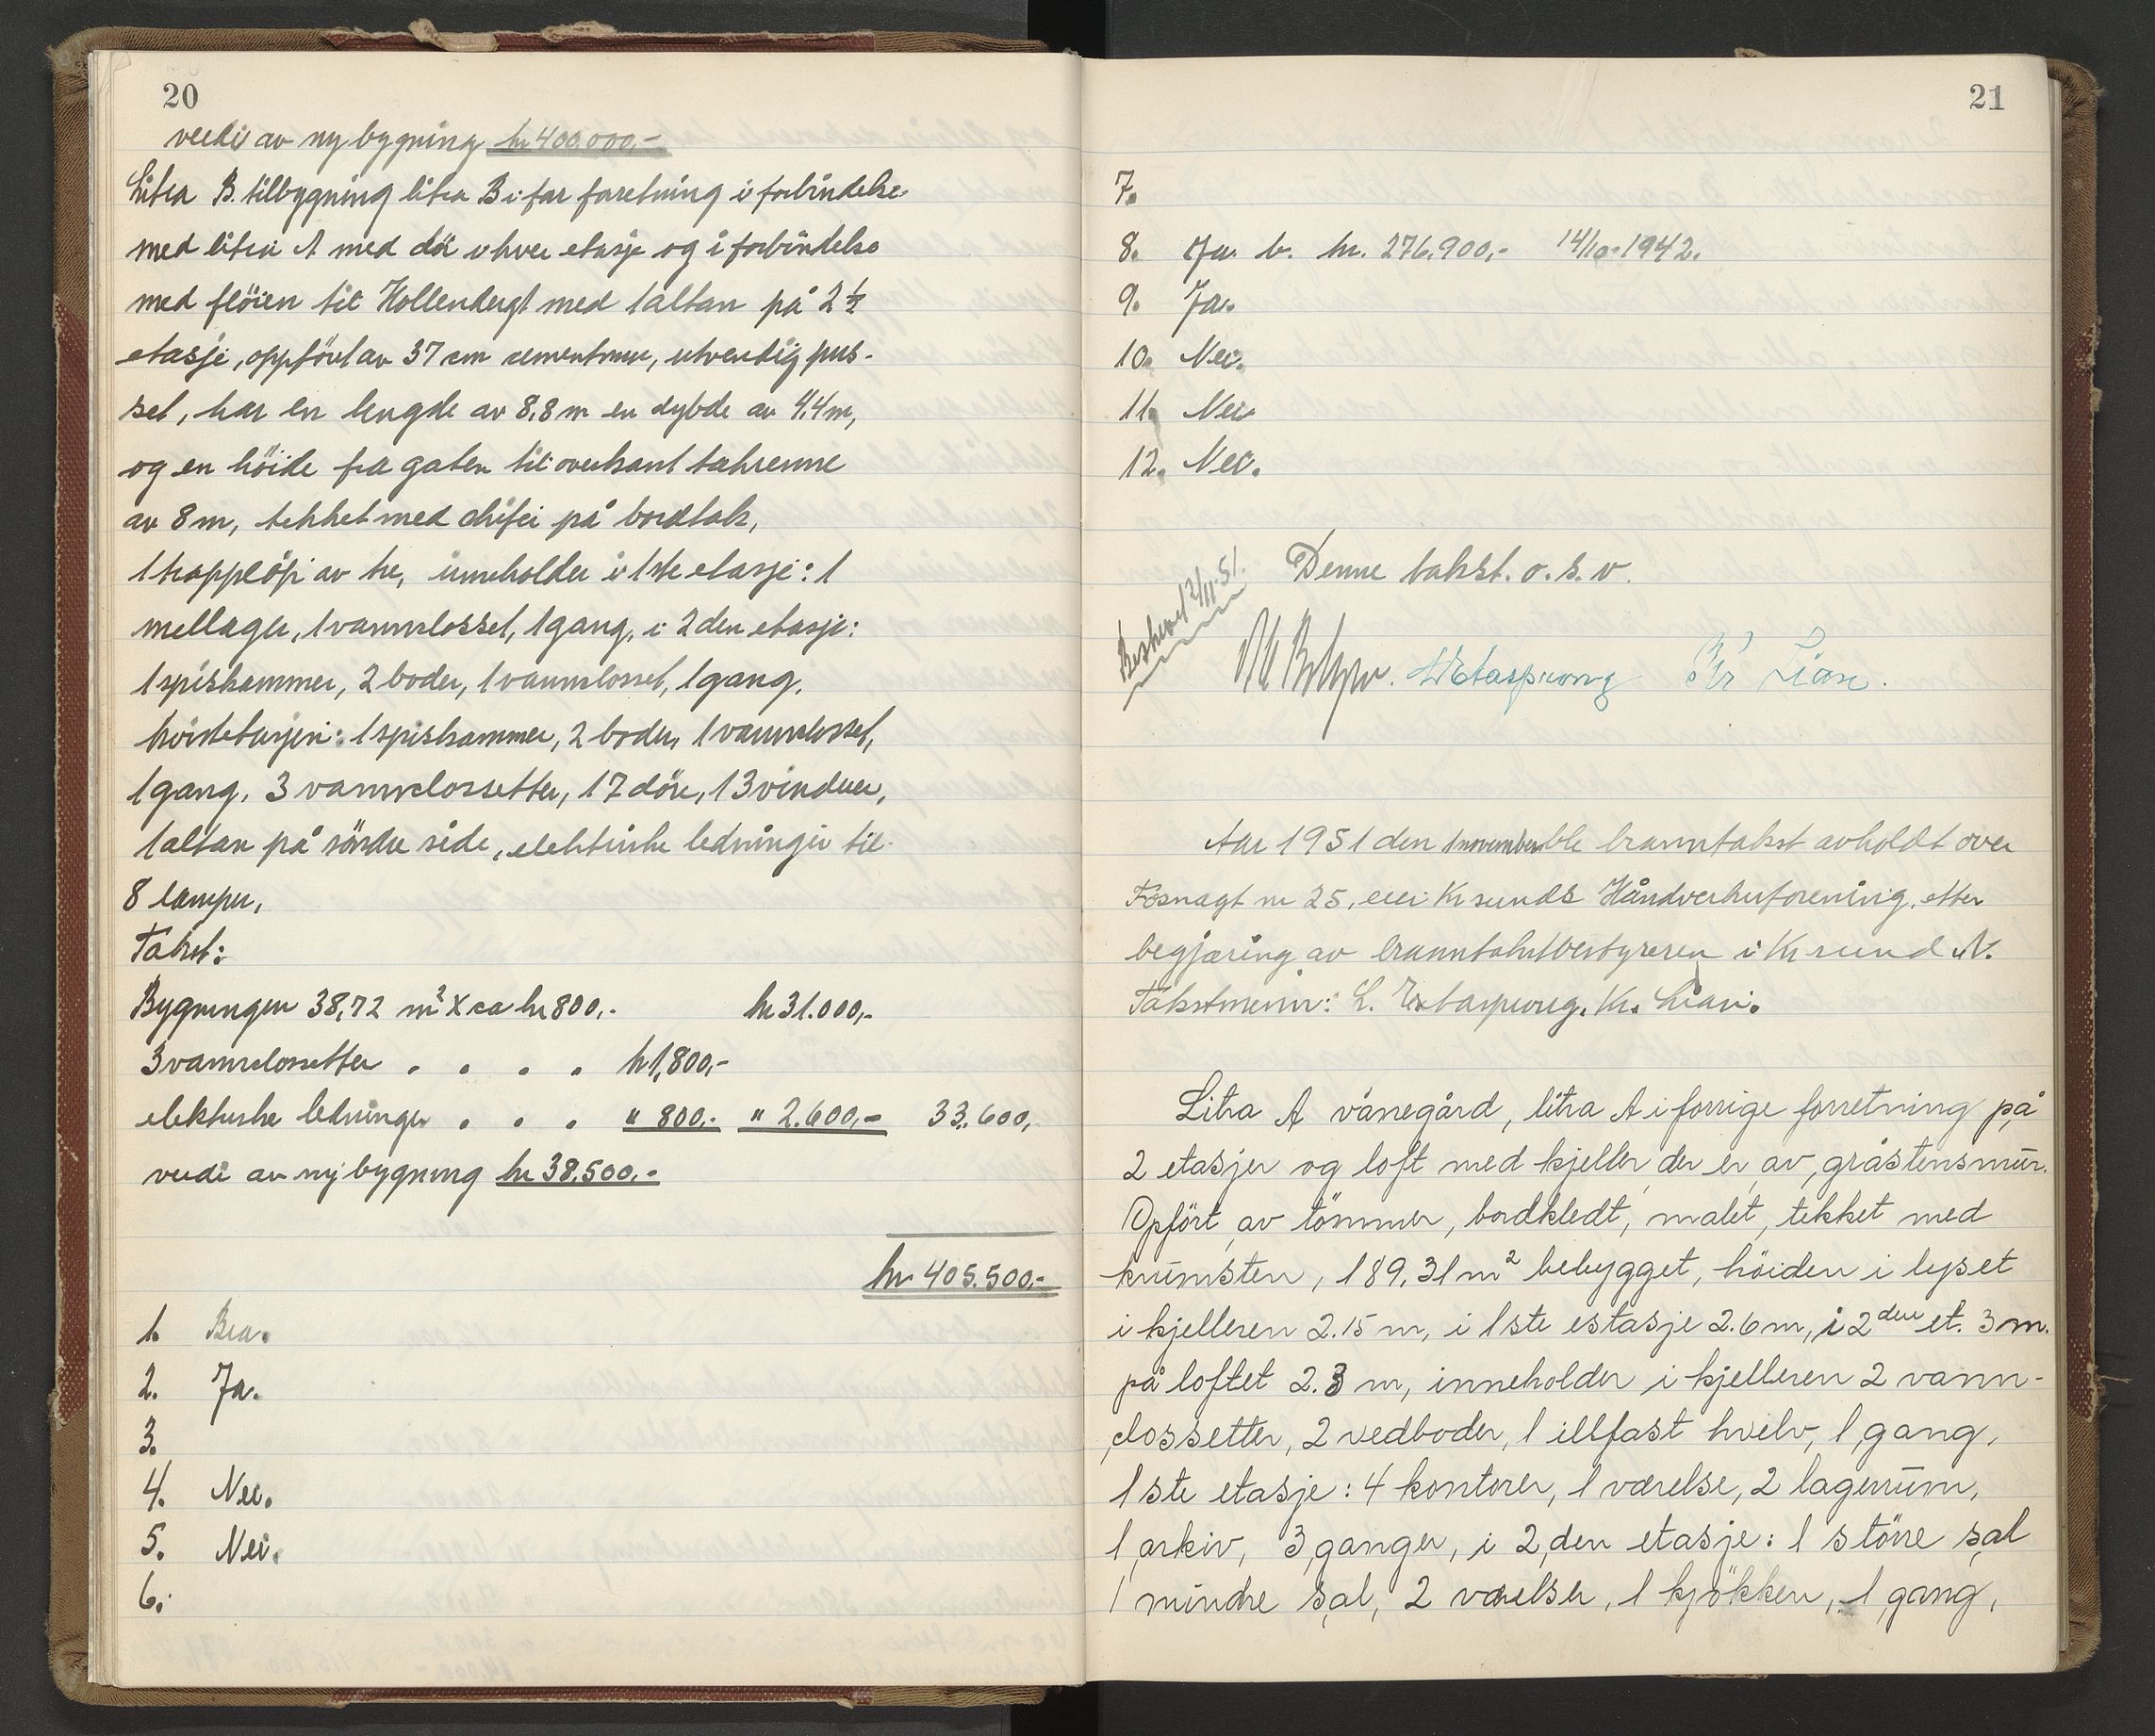 20
verdi av ny bygning kr 400.000,-
Litra B. tilbygning litra B i før forretning i forbindelse
med litra A med dör i hver etasje og i forbindelse
med flöien til Hollendergt med 1 altan på 2 1/2
etasje, oppfört av 37 cm cementmur, utvendig pus-
set, har en lengde av 8,8 m en dybde av 4,4 m,
og en höide fra gaten til overkant takrenne
av 8 m, tekket med skifer på bordtak,
1 trappelöp av tre, inneholder i 1ste etasje: 1
mellager, 1 vannclosset, 1 gang, i 2den etasje:
1 spiskammer, 2 boder, 1 vannclosset, 1 gang,
kvistetasjen: 1 spiskammer, 2 boder, 1 vannclosset,
1 gang, 3 vannclossetter, 17 döre, 13 vinduer,
1 altan på söndre side, elektriske ledninger til
8 lamper,
Takst:
Bygningen 38,72 m² X ca kr 800,- kr 31.000,-
3 vannclossetter . . . . kr 1,800,-
elektriske ledninger . . . " 800,- " 2.600,- 33.600,
verdi av ny bygning kr 38.500,-
kr 405.500,-
1. Bra.
2. Ja.
3.
4. Nei.
5. Nei.
6.
21
7.
8. Ja. b. kr. 276.900,- 14/10-1942.
9. Ja.
10. Nei.
11. Nei
12. Nei.
Denne takst. o. s. v.
Beskrevet 12/11-51.
Kr Lian.
Aar 1951 den 1 november ble branntakst avholdt over
Fosnagt nr 25, eier Kr sunds Håndverkerforening, etter
begjæring av branntakstbestyreren i Kr sund N.
Takstmenn: L. Kr. Lian.
Litra A vånegård, litra A i forrige forretning på
2 etasjer og loft med kjeller der er av gråstensmur.
Opfört av tömmer, bordkledt, malet, tekket med
krumsten, 189,31 m² bebygget, höiden i lyset
i kjelleren 2.15 m, i 1ste estasje 2.6 m, i 2den et. 3 m.
på loftet 2.3 m, inneholder i kjelleren 2 vann-
clossetter, 2 vedboder, 1 illfast hvelv, 1 gang,
1ste etasje: 4 kontorer, 1 værelse, 2 lagerrum,
1 arkiv, 3 ganger, i 2den etasje: 1 större sal
1 mindre sal, 2 værelser, 1 kjökken, 1 gang,